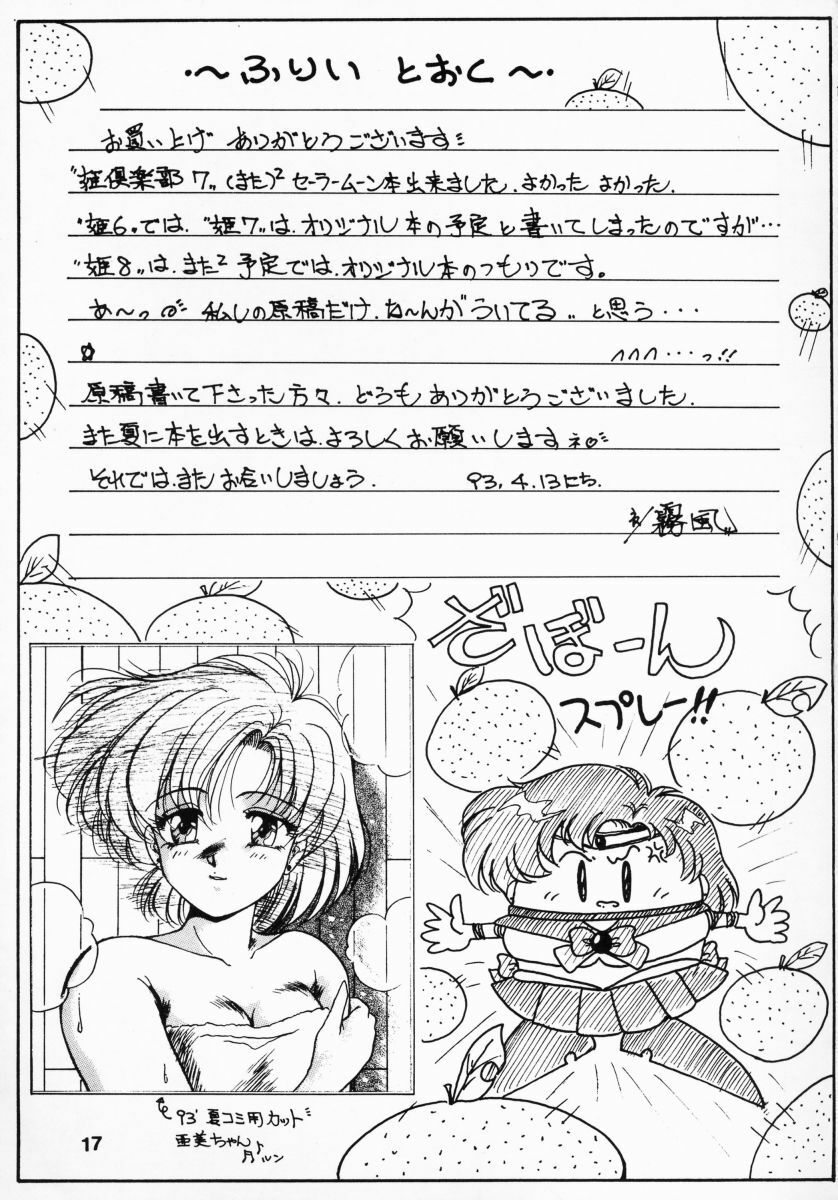 ・～ふりい とおく～・
お買い上げ ありがとうございます
"姫倶楽部7"(また)² セーラームーン本出来ました.よかった よかった.
"姫6"では. "姫7"は.オリジナル本の予定と書いてしまったのですが…
"姫8"は.また² 予定では.オリジナル本のつもりです。
あ～っ 私しの原稿だけ.ね～んがういてる" と思う・・・
へへへ・・・っ!!
原稿書いて下さった方々. どうもありがとうございました.
また夏に本を出すときは.よろしくお願いしますネ
それでは.また お会いしましょう. 93.4.13にち.
霧風
ざぼーん
スプレー!!
93' 夏コミ用カット
亜美ちゃん
ルン♪
17